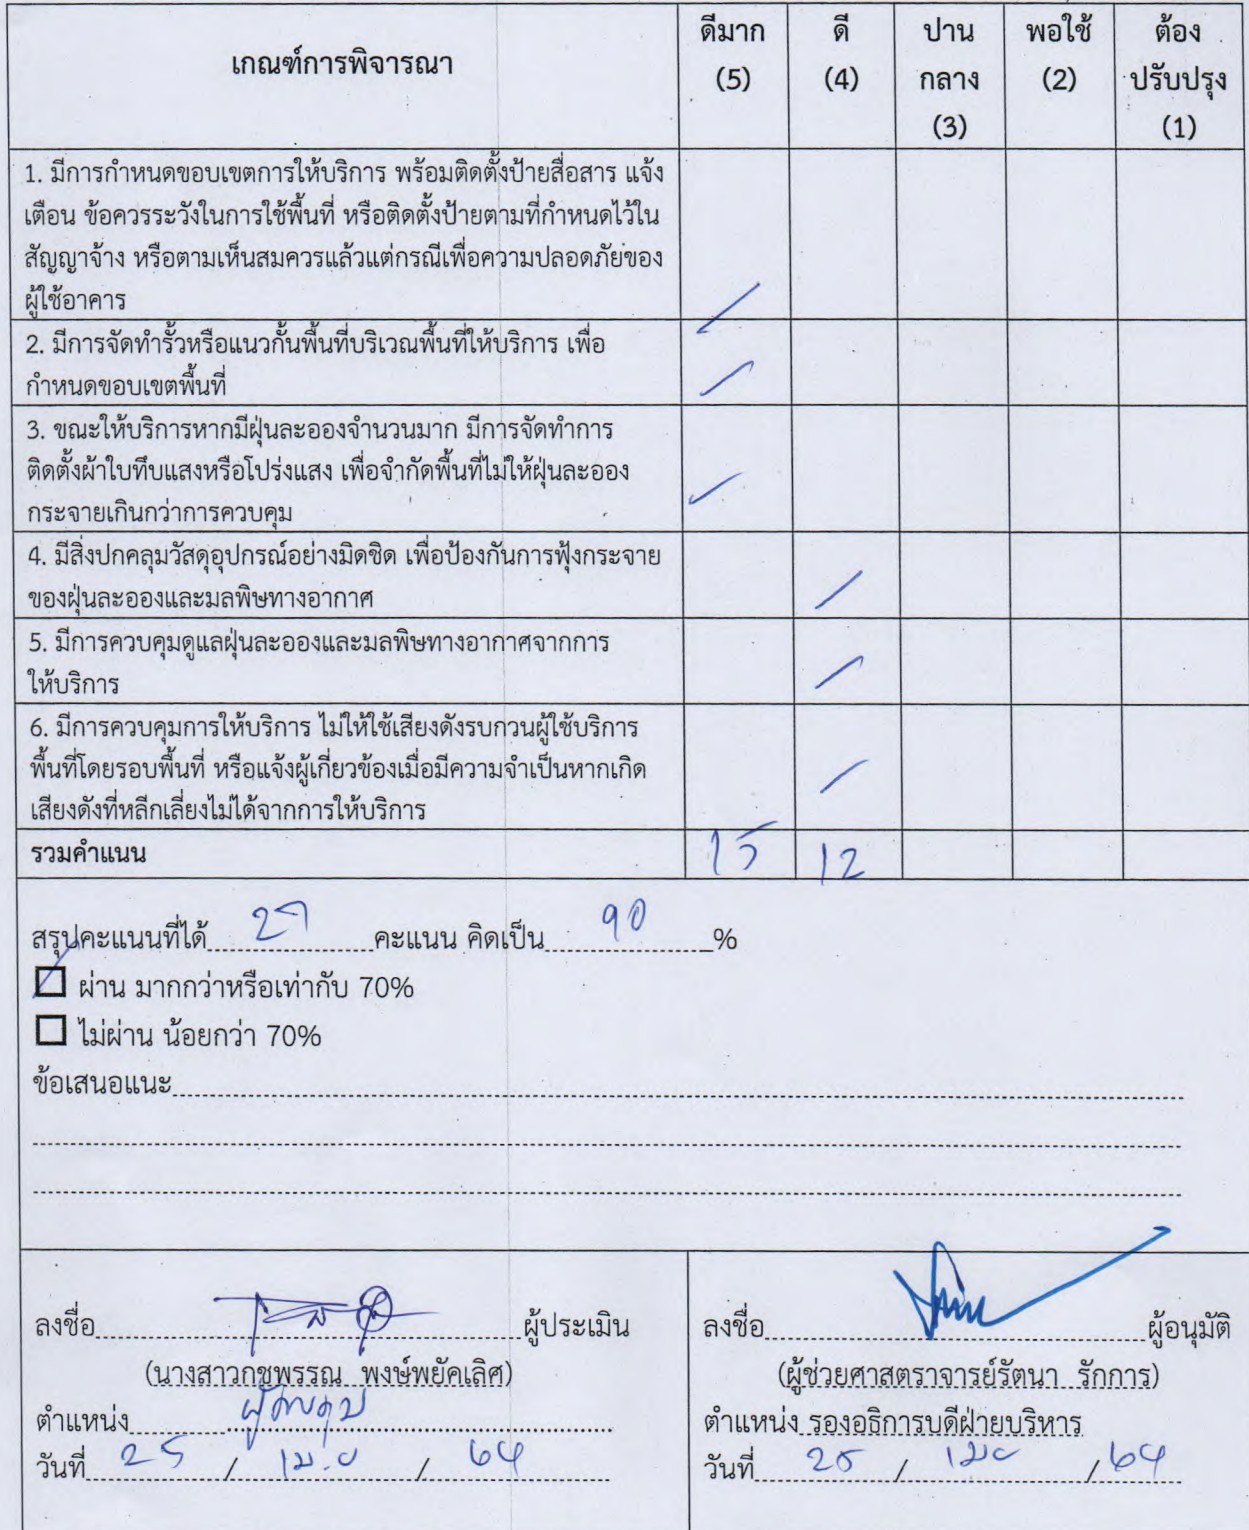 เกณฑ์การพิจารณา
ดีมาก
(5)
ดี
(4)
ปาน
กลาง
(3)
พอใช้
(2)
ต้อง
ปรับปรุง
(1)
1. มีการกำหนดขอบเขตการให้บริการ พร้อมติดตั้งป้ายสื่อสาร แจ้ง
เตือน ข้อควรระวังในการใช้พื้นที่ หรือติดตั้งป้ายตามที่กำหนดไว้ใน
สัญญาจ้าง หรือตามเห็นสมควรแล้วแต่กรณีเพื่อความปลอดภัยของ
ผู้ใช้อาคาร
2. มีการจัดทำรั้วหรือแนวกั้นพื้นที่บริเวณพื้นที่ให้บริการ เพื่อ
กำหนดขอบเขตพื้นที่
3. ขณะให้บริการหากมีฝุ่นละอองจำนวนมาก มีการจัดทำการ
ติดตั้งผ้าใบทึบแสงหรือโปร่งแสง เพื่อจำกัดพื้นที่ไม่ให้ฝุ่นละออง
กระจายเกินกว่าการควบคุม
4. มีสิ่งปกคลุมวัสดุอุปกรณ์อย่างมิดชิด เพื่อป้องกันการฟุ้งกระจาย
ของฝุ่นละอองและมลพิษทางอากาศ
5. มีการควบคุมดูแลฝุ่นละอองและมลพิษทางอากาศจากการ
ให้บริการ
6. มีการควบคุมการให้บริการ ไม่ให้ใช้เสียงดังรบกวนผู้ใช้บริการ
พื้นที่โดยรอบพื้นที่ หรือแจ้งผู้เกี่ยวข้องเมื่อมีความจำเป็นหากเกิด
เสียงดังที่หลีกเลี่ยงไม่ได้จากการให้บริการ
รวมคำแนน 15 12
สรุปคะแนนที่ได้ 27 คะแนน คิดเป็น 90 %
ผ่าน มากกว่าหรือเท่ากับ 70%
ไม่ผ่าน น้อยกว่า 70%
ข้อเสนอแนะ
ลงชื่อ ผู้ประเมิน
(นางสาวกชพรรณ พงษ์พยัคเลิศ)
ตำแหน่ง ผู้ควบคุม
วันที่ 25 / เม.ย / 64
ลงชื่อ ผู้อนุมัติ
(ผู้ช่วยศาสตราจารย์รัตนา รักการ)
ตำแหน่ง รองอธิการบดีฝ่ายบริหาร
วันที่ 25 / เมย / 64